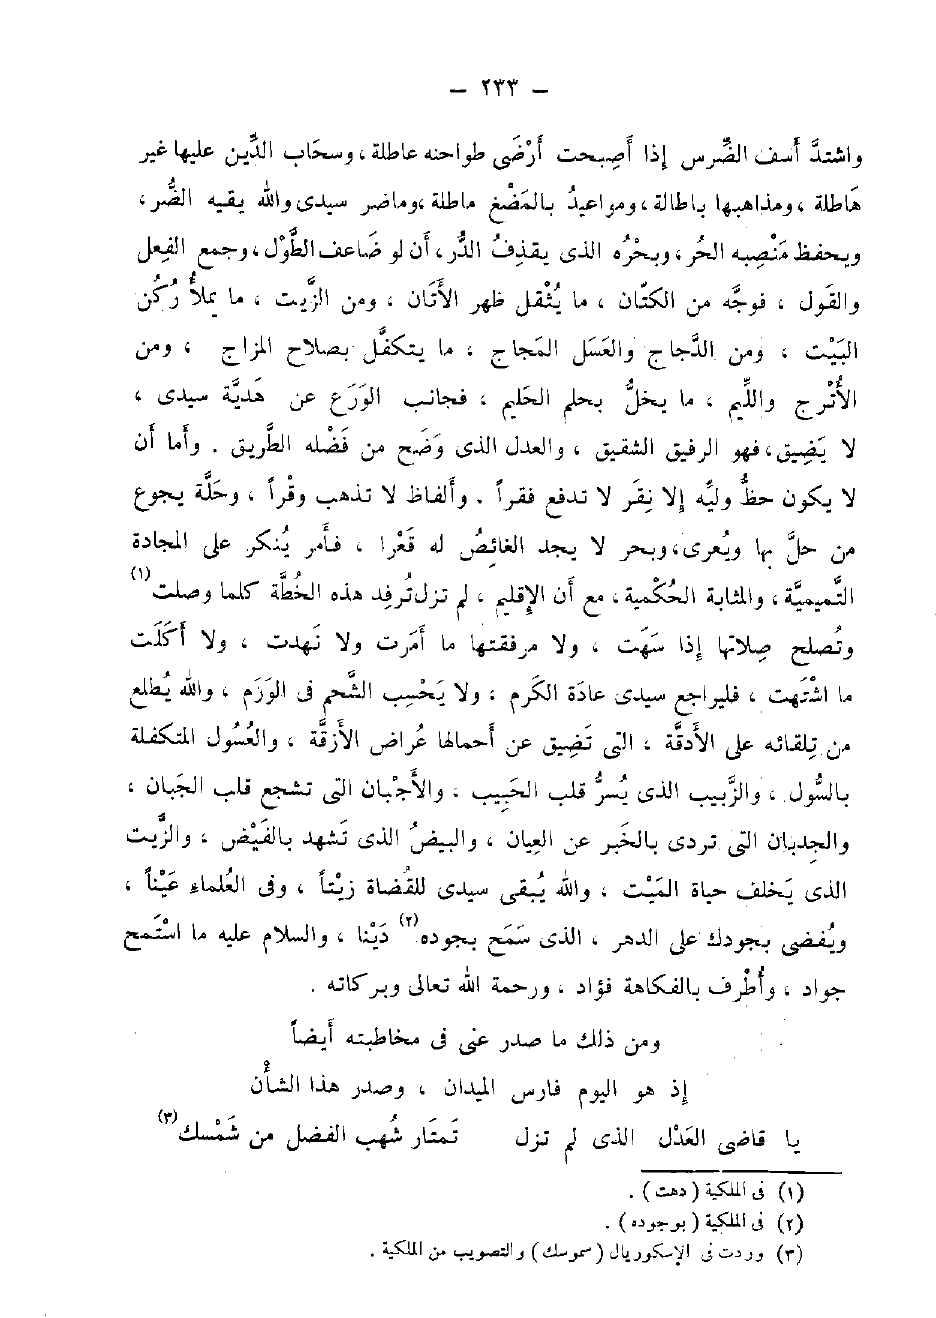 — ٢٣٣ —
واشتدَّ أسف الضِّرس إذا أصبحت أرْضَى طواحنه عاطلة ، وسحَاب الدِّين عليها غير
هَاطلة ، ومذاهبها باطالة ، ومواعيدُ بالمَضْغ ماطلة ، وماضر سيدى والله يقيه الضُّر ،
ويحفظ مَنْصِبه الحُر ، وبحْرُه الذى يقذِفُ الدُّر ، أن لو ضَاعف الطَّوْل ، وجمع الفِعل
والقَول ، فوجَّه من الكتَّان ، ما يُثْقل ظهر الأتَان ، ومن الزَّيت ، ما يملأ رُكُن
البَيْت ، ومن الدَّجاج والعَسَل المَجاج ، ما يتكفَّل بصلاح المزاج ، ومن
الأُتْرج واللِّيم ، ما يخلُّ بحلم الحَليم ، فجانب الوَرَع عن هَديَّة سيدى ،
لا يَضِيق ، فهو الرفيق الشقيق ، والعدل الذى وَضَح من فَضْله الطَّريق . وأما أن
لا يكون حظُّ وليِّه إلا نِقَر لا تدفع فقراً . وألفاظ لا تذهب وقْراً ، وحَلَّة يجوع
من حلَّ بها ويُعرى ، وبحر لا يجد الغائِصُ له قَعْرا ، فأمر يُنكر على المجادة
التَّميميَّة ، والمثابة الحُكْمية ، مع أن الإقليم ، لم تزل تُرفِد هذه الخُطَّة كلما وصلت (١)
وتُصلح صِلاتها إذا سَهَت ، ولا مرفقتها ما أمَرت ولا نَهدت ، ولا أكَلَت
ما اشْتَهت ، فليراجع سيدى عادَة الكَرم ، ولا يَحْسِب الشَّحم فى الوَرَم ، والله يُطلع
من تِلقائه على الأدقَّة ، التى تَضِيق عن أحمالها عُراض الأزقَّة ، والعُسُول المتكفلة
بالسُّول ، والزَّبيب الذى يُسرُّ قلب الحَبِيب ، والأجْبان التى تشجع قلب الجَبان ،
والجديان التى تردى بالخَبر عن العِيان ، والبيضُ الذى تَشهد بالفَيْض ، والزَّيت
الذى يَخلف حياة المَيْت ، والله يُبقى سيدى للقُضاة زيْتاً ، وفى العُلماء عَيْناً ،
ويُفضى بجودك على الدهر ، الذى سَمَح بجوده (٢) دَيْنا ، والسلام عليه ما اسْتَمح
جواد ، وأُطْرف بالفكاهة فؤاد ، ورحمة الله تعالى وبركاته .
ومن ذلك ما صدر عنى فى مخاطبته أيضاً
إذ هو اليوم فارس الميدان ، وصدر هذا الشأن
يا قاضى العَدْل الذى لم تزل تَمتَار شُهب الفضل من شَمْسك (٣)
(١) فى الملكية ( دهت ) .
(٢) فى الملكية ( بوجوده ) .
(٣) وردت فى الإسكوريال ( سموسك ) والتصويب من الملكية .